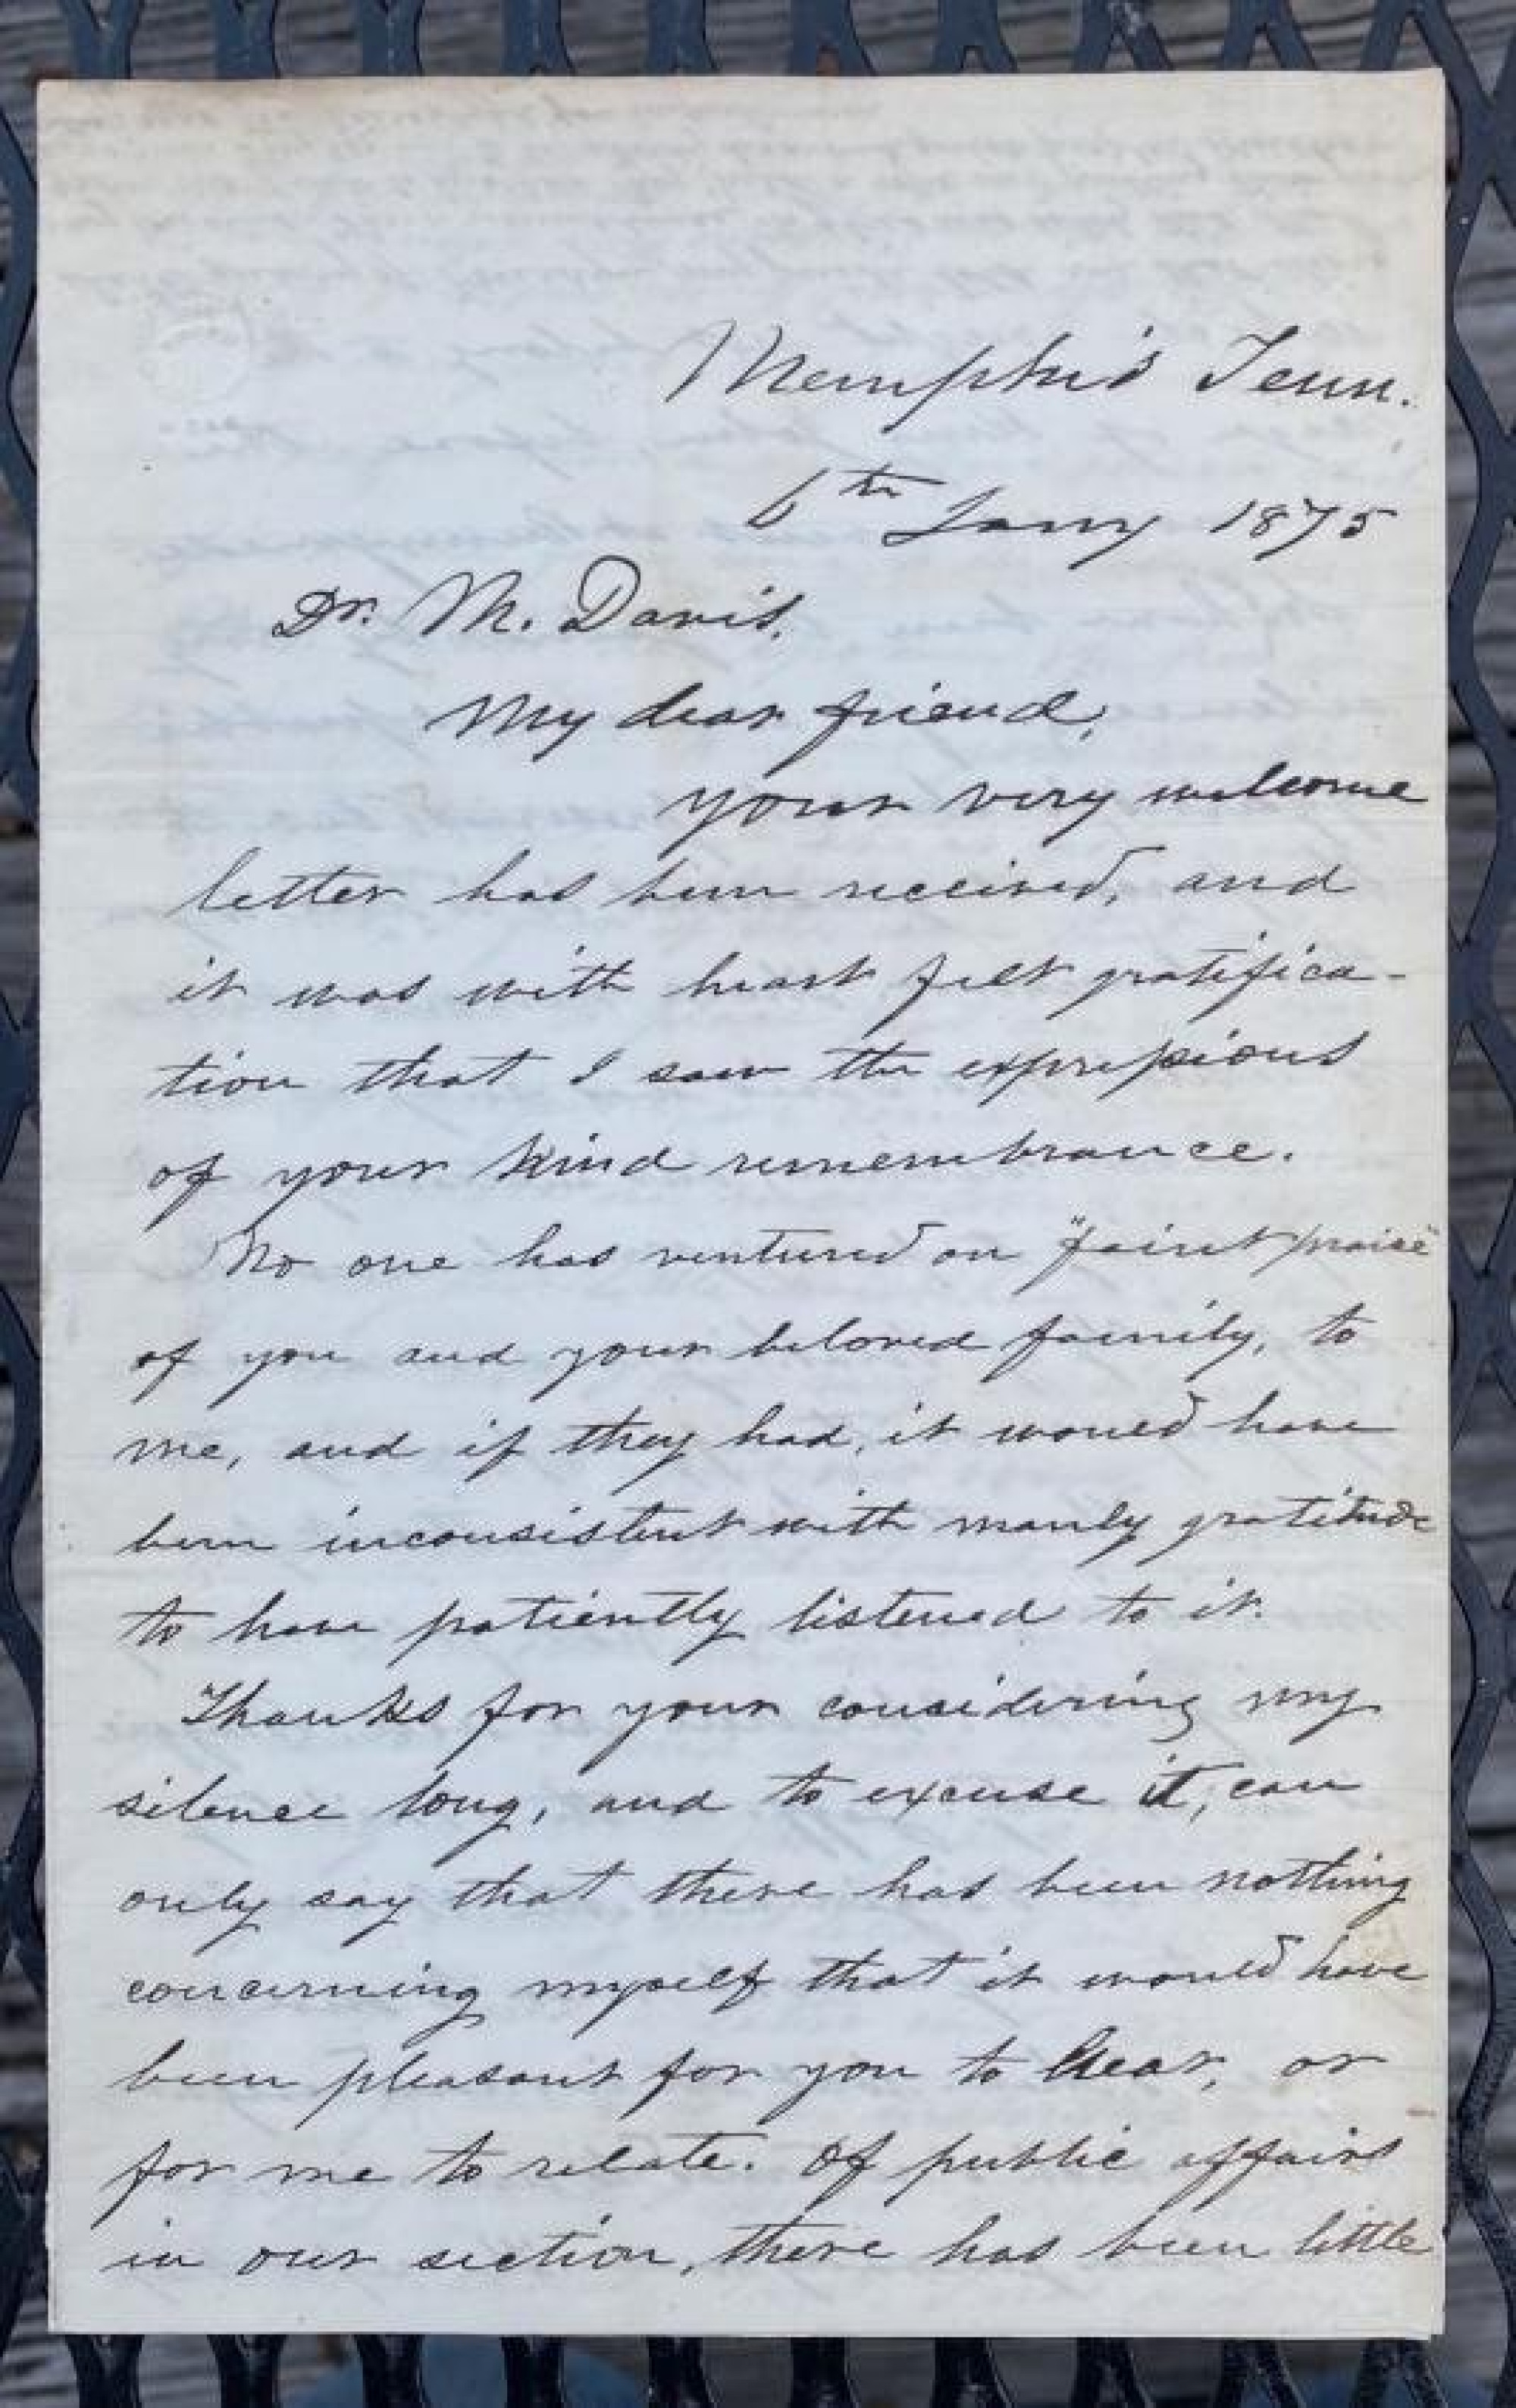 Memphis Tenn.
6th Jany 1875
Dr. M. Davis,
My dear friend,
your very welcome
letter has been received, and
it was with heart felt gratifica-
tion that I saw the expressions
of your kind remembrance.
No one has ventured on "faint praise"
of you and your beloved family, to
me, and if they had, it would have
been inconsistent with manly gratitude
to have patiently listened to it.
Thanks for your considering my
silence long, and to excuse it, can
only say that there has been nothing
concerning myself that it would have
been pleasant for you to hear, or
for me to relate. Of public affairs
in our section, there has been little